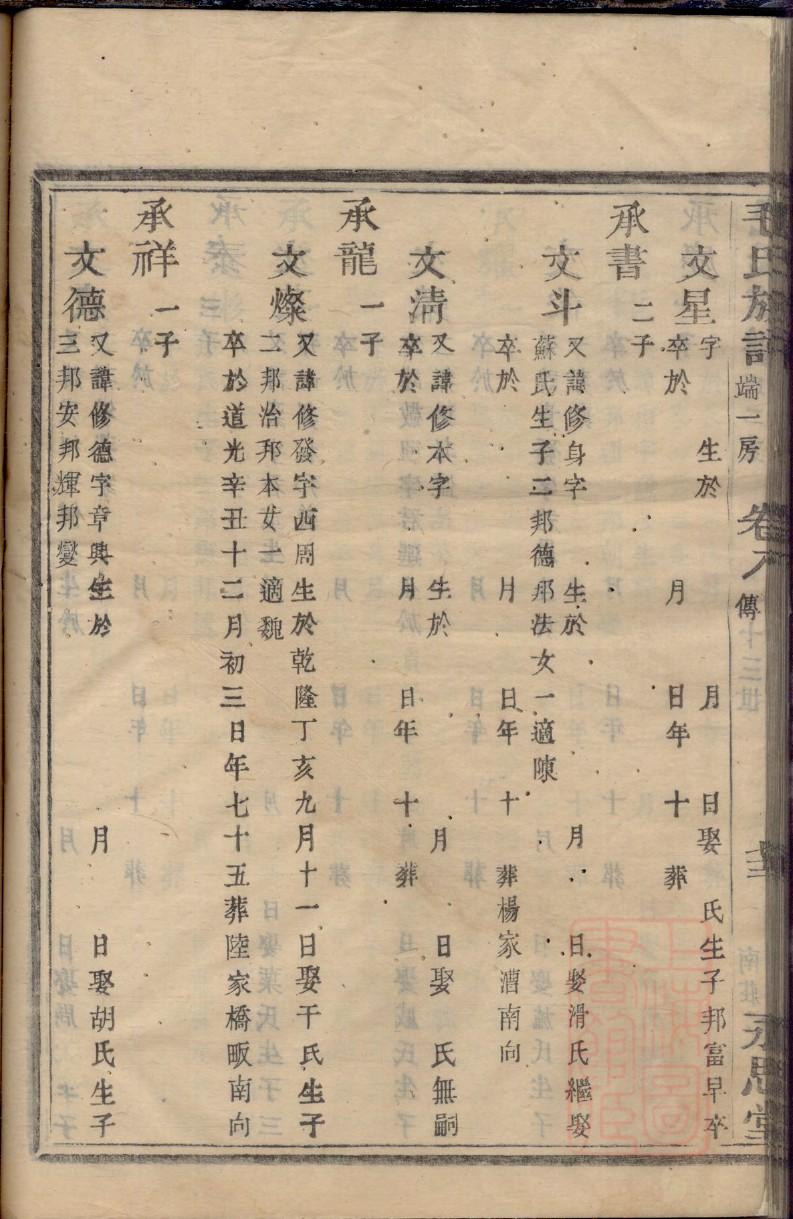 毛氏族譜 端一房 卷八 傳 南莊 永思堂
文星 字 生於 月 日娶 氏生子邦富早卒
卒於 月 日年 十 葬
承書 二子
文斗 又諱修身字 生於 月 日娶滑氏繼娶
蘇氏生子二邦德邦法女一適陳
卒於 月 日年 十 葬楊家漕南向
文清 又諱修本字 生於 月 日娶 氏無嗣
卒於 月 日年 十 葬
承龍 一子
文燦 又諱修發字西周生於乾隆丁亥九月十一日娶干氏生子
二邦治邦本女一適魏
卒於道光辛丑十二月初三日年七十五葬陸家橋畈南向
承祥 一子
文德 又諱修德字章興生於 月 日娶胡氏生子
三邦安邦輝邦燮